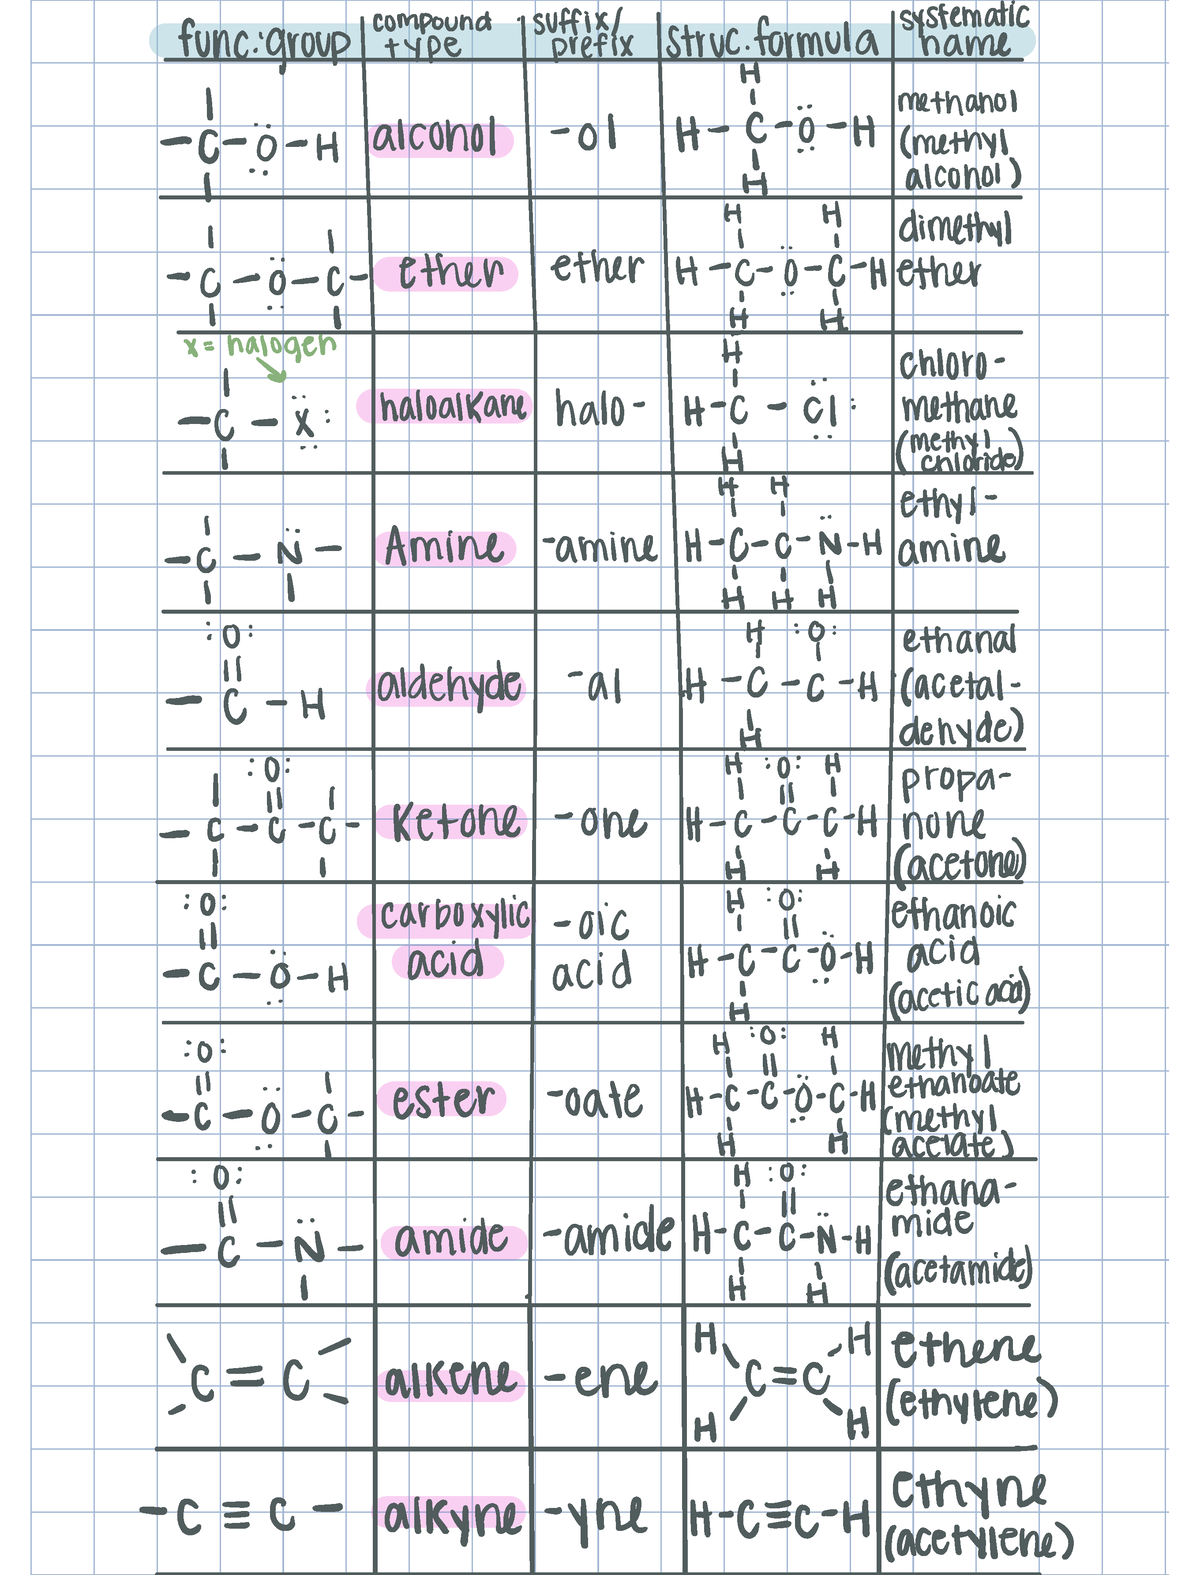 func. group
compound
type
suffix/
prefix
struc. formula
systematic
name
C – O – H
alcohol
-ol
H
H – C – O – H
H
methanol
(methyl
alcohol)
C – O – C
ether
ether
H H
H – C – O – C – H
H H
dimethyl
ether
x = halogen
C – X
haloalkane
halo-
H
H – C – Cl
H
chloro-
methane
(methyl
chloride)
C – N
Amine
-amine
H H
H – C – C – N – H
H H H
ethyl-
amine
O
C – H
aldehyde
-al
H O
H – C – C – H
H
ethanal
(acetal-
dehyde)
O
C – C – C
Ketone
-one
H O H
H – C – C – C – H
H H
propa-
none
(acetone)
O
C – O – H
carboxylic
acid
-oic
acid
H O
H – C – C – O – H
H
ethanoic
acid
(acetic acid)
O
C – O – C
ester
-oate
H O H
H – C – C – O – C – H
H H
methyl
ethanoate
(methyl
acetate)
O
C – N
amide
-amide
H O
H – C – C – N – H
H H
ethana-
mide
(acetamide)
C = C
alkene
-ene
H H
C = C
H H
ethene
(ethylene)
– C ≡ C –
alkyne
-yne
H – C ≡ C – H
ethyne
(acetylene)